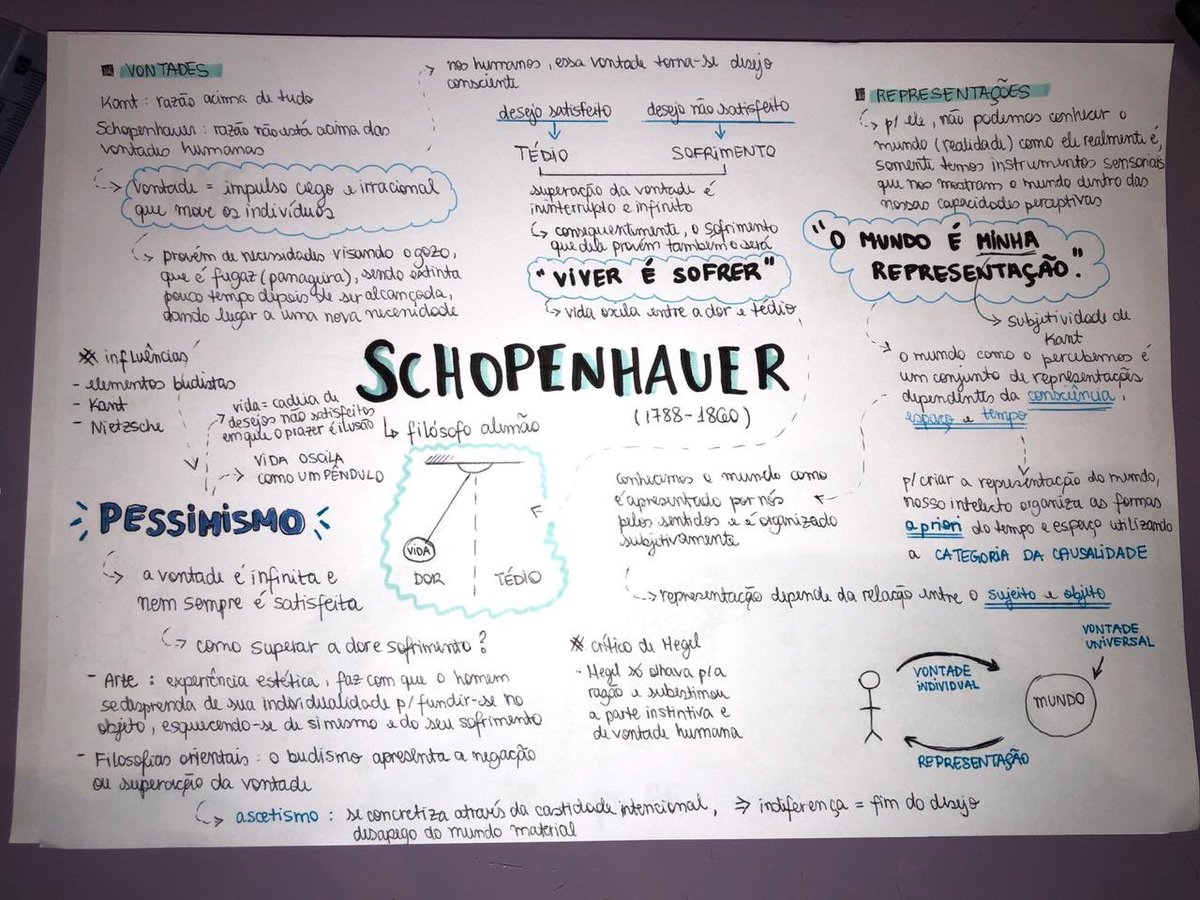 VONTADES
Kant : razão acima de tudo
Schopenhauer : razão não está acima das
vontades humanas
vontade = impulso cego e irracional
que move os indivíduos
provém de necessidades visando o gozo,
que é fugaz (passageira), sendo extinta
pouco tempo depois de ser alcançada,
dando lugar a uma nova necessidade
nos humanos, essa vontade torna-se desejo
consciente
desejo satisfeito
desejo não satisfeito
TÉDIO
SOFRIMENTO
superação da vontade é
ininterrupto e infinito
consequentemente, o sofrimento
que dele provém também o será
"VIVER É SOFRER"
vida oscila entre a dor e tédio
REPRESENTAÇÕES
p/ ele, não podemos conhecer o
mundo (realidade) como ele realmente é,
somente temos instrumentos sensoriais
que nos mostram o mundo dentro das
nossas capacidades perceptivas
"O MUNDO É MINHA
REPRESENTAÇÃO".
subjetividade de
Kant
o mundo como o percebemos é
um conjunto de representações
dependentes da consciência,
espaço e tempo
p/ criar a representação do mundo,
nosso intelecto organiza as formas
a priori do tempo e espaço utilizando
a CATEGORIA DA CAUSALIDADE
SCHOPENHAUER
(1788-1860)
filósofo alemão
influências
- elementos budistas
- Kant
- Nietzsche
vida = cadeia de
desejos não satisfeitos
em que o prazer é ilusão
VIDA OSCILA
COMO UM PÊNDULO
VIDA
DOR
TÉDIO
conhecemos o mundo como
é apresentado por nós
pelos sentidos e é organizado
subjetivamente
representação depende da relação entre o sujeito e objeto
PESSIMISMO
a vontade é infinita e
nem sempre é satisfeita
como superar a dor e sofrimento?
- Arte : experiência estética, faz com que o homem
se desprenda de sua individualidade p/ fundir-se no
objeto, esquecendo-se de si mesmo e do seu sofrimento
- Filosofias orientais : o budismo apresenta a negação
ou superação da vontade
ascetismo : se concretiza através da castidade intencional, => indiferença = fim do desejo
desapego do mundo material
crítico de Hegel
- Hegel só olhava p/ a
razão e subestimou
a parte instintiva e
de vontade humana
VONTADE
UNIVERSAL
VONTADE
INDIVIDUAL
MUNDO
REPRESENTAÇÃO